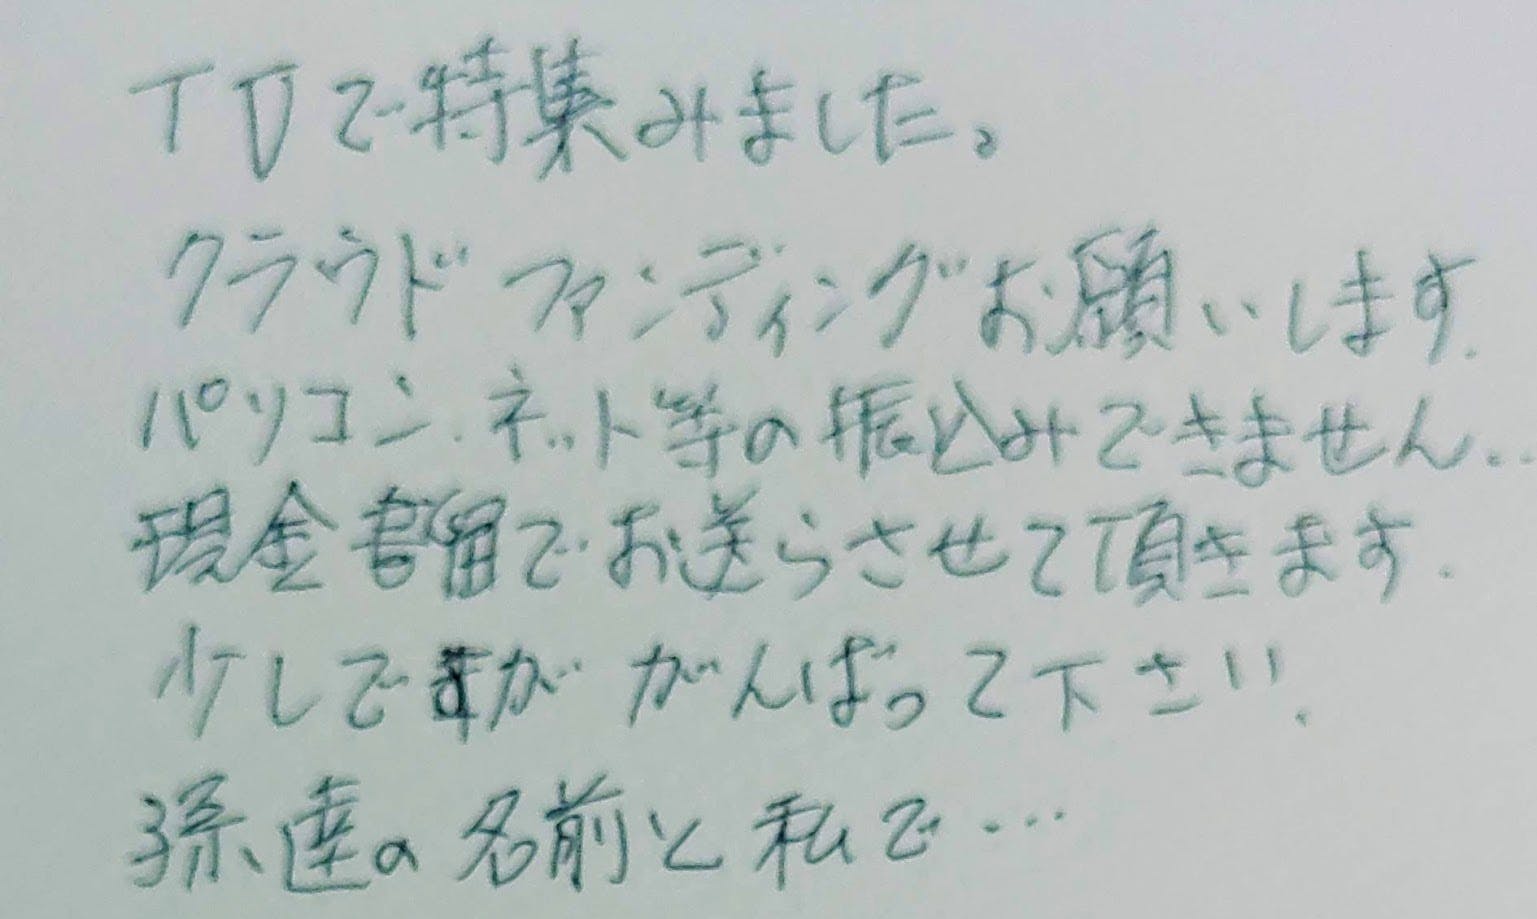 TVで特集みました。
クラウドファンディングお願いします.
パソコン.ネット等の振込みできません..
現金書留でお送らさせて頂きます.
少しですが がんばって下さい.
孫達の名前と私で…